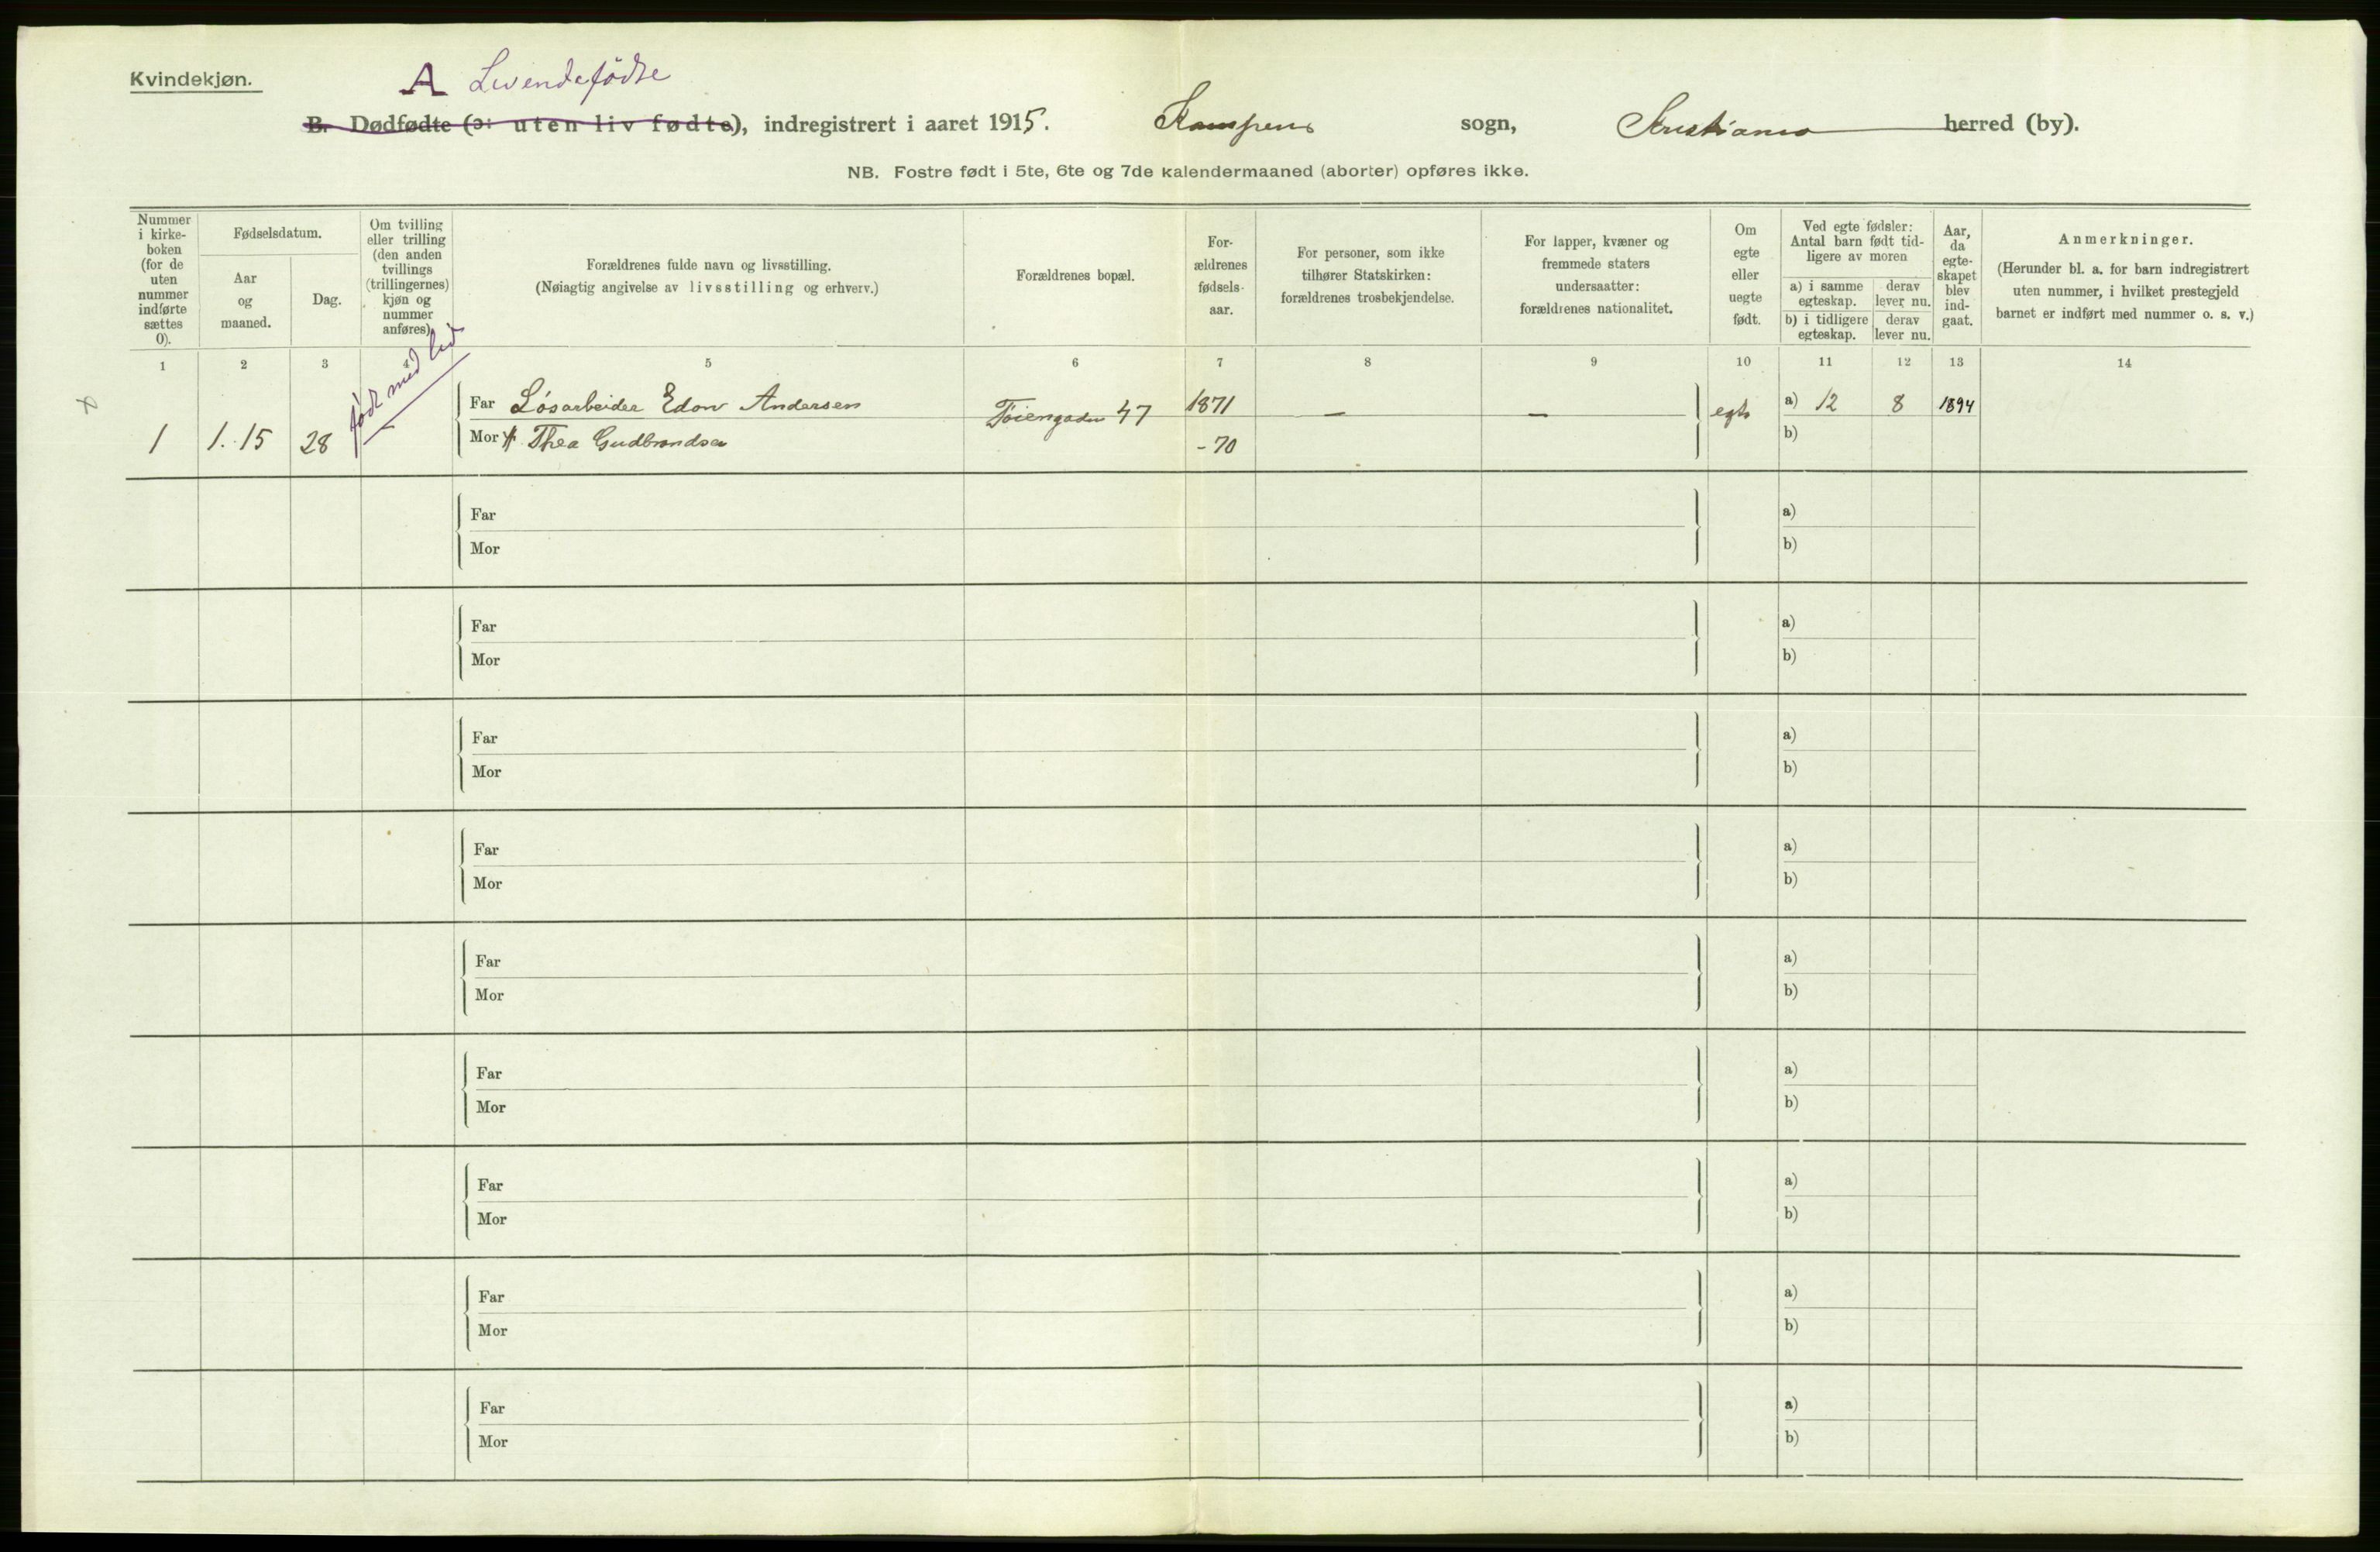 Kvindekjøn.
A Levendefødte
B. Dødfødte (ɔ: uten liv fødte), indregistrert i aaret 1915. Kampens sogn, Kristiania herred (by).
NB. Fostre født i 5te, 6te og 7de kalendermaaned (aborter) opføres ikke.
Nummer
i kirke-
boken
(for de
uten
nummer
indførte
sættes
0).
Fødselsdatum.
Aar
og
maaned.
Dag.
Om tvilling
eller trilling
(den anden
tvillings
(trillingernes)
kjøn og
nummer
anføres).
Forældrenes fulde navn og livsstilling.
(Nøiagtig angivelse av livsstilling og erhverv.)
Forældrenes bopæl.
For-
ældrenes
fødsels-
aar.
For personer, som ikke
tilhører Statskirken:
forældrenes trosbekjendelse.
For lapper, kvæner og
fremmede staters
undersaatter:
forældrenes nationalitet.
Om
egte
eller
uegte
født.
Ved egte fødsler:
Antal barn født tid-
ligere av moren
a) i samme
egteskap.
derav
lever nu.
b) i tidligere
egteskap.
derav
lever nu.
Aar,
da
egte-
skapet
blev
ind-
gaat.
Anmerkninger.
(Herunder bl. a. for barn indregistrert
uten nummer, i hvilket prestegjeld
barnet er indført med nummer o. s. v.)
1 2 3 4 5 6 7 8 9 10 11 12 13 14
født med liv
Far Løsarbeider Edvv Andersen Tøiengaden 47 1871 — — egte a) 12 8 1894
1 1. 15 28 Mor Thea Gudbrandsen - 70 b)
Far a)
Mor b)
Far a)
Mor b)
Far a)
Mor b)
Far a)
Mor b)
Far a)
Mor b)
Far a)
Mor b)
Far a)
Mor b)
Far a)
Mor b)
Far a)
Mor b)